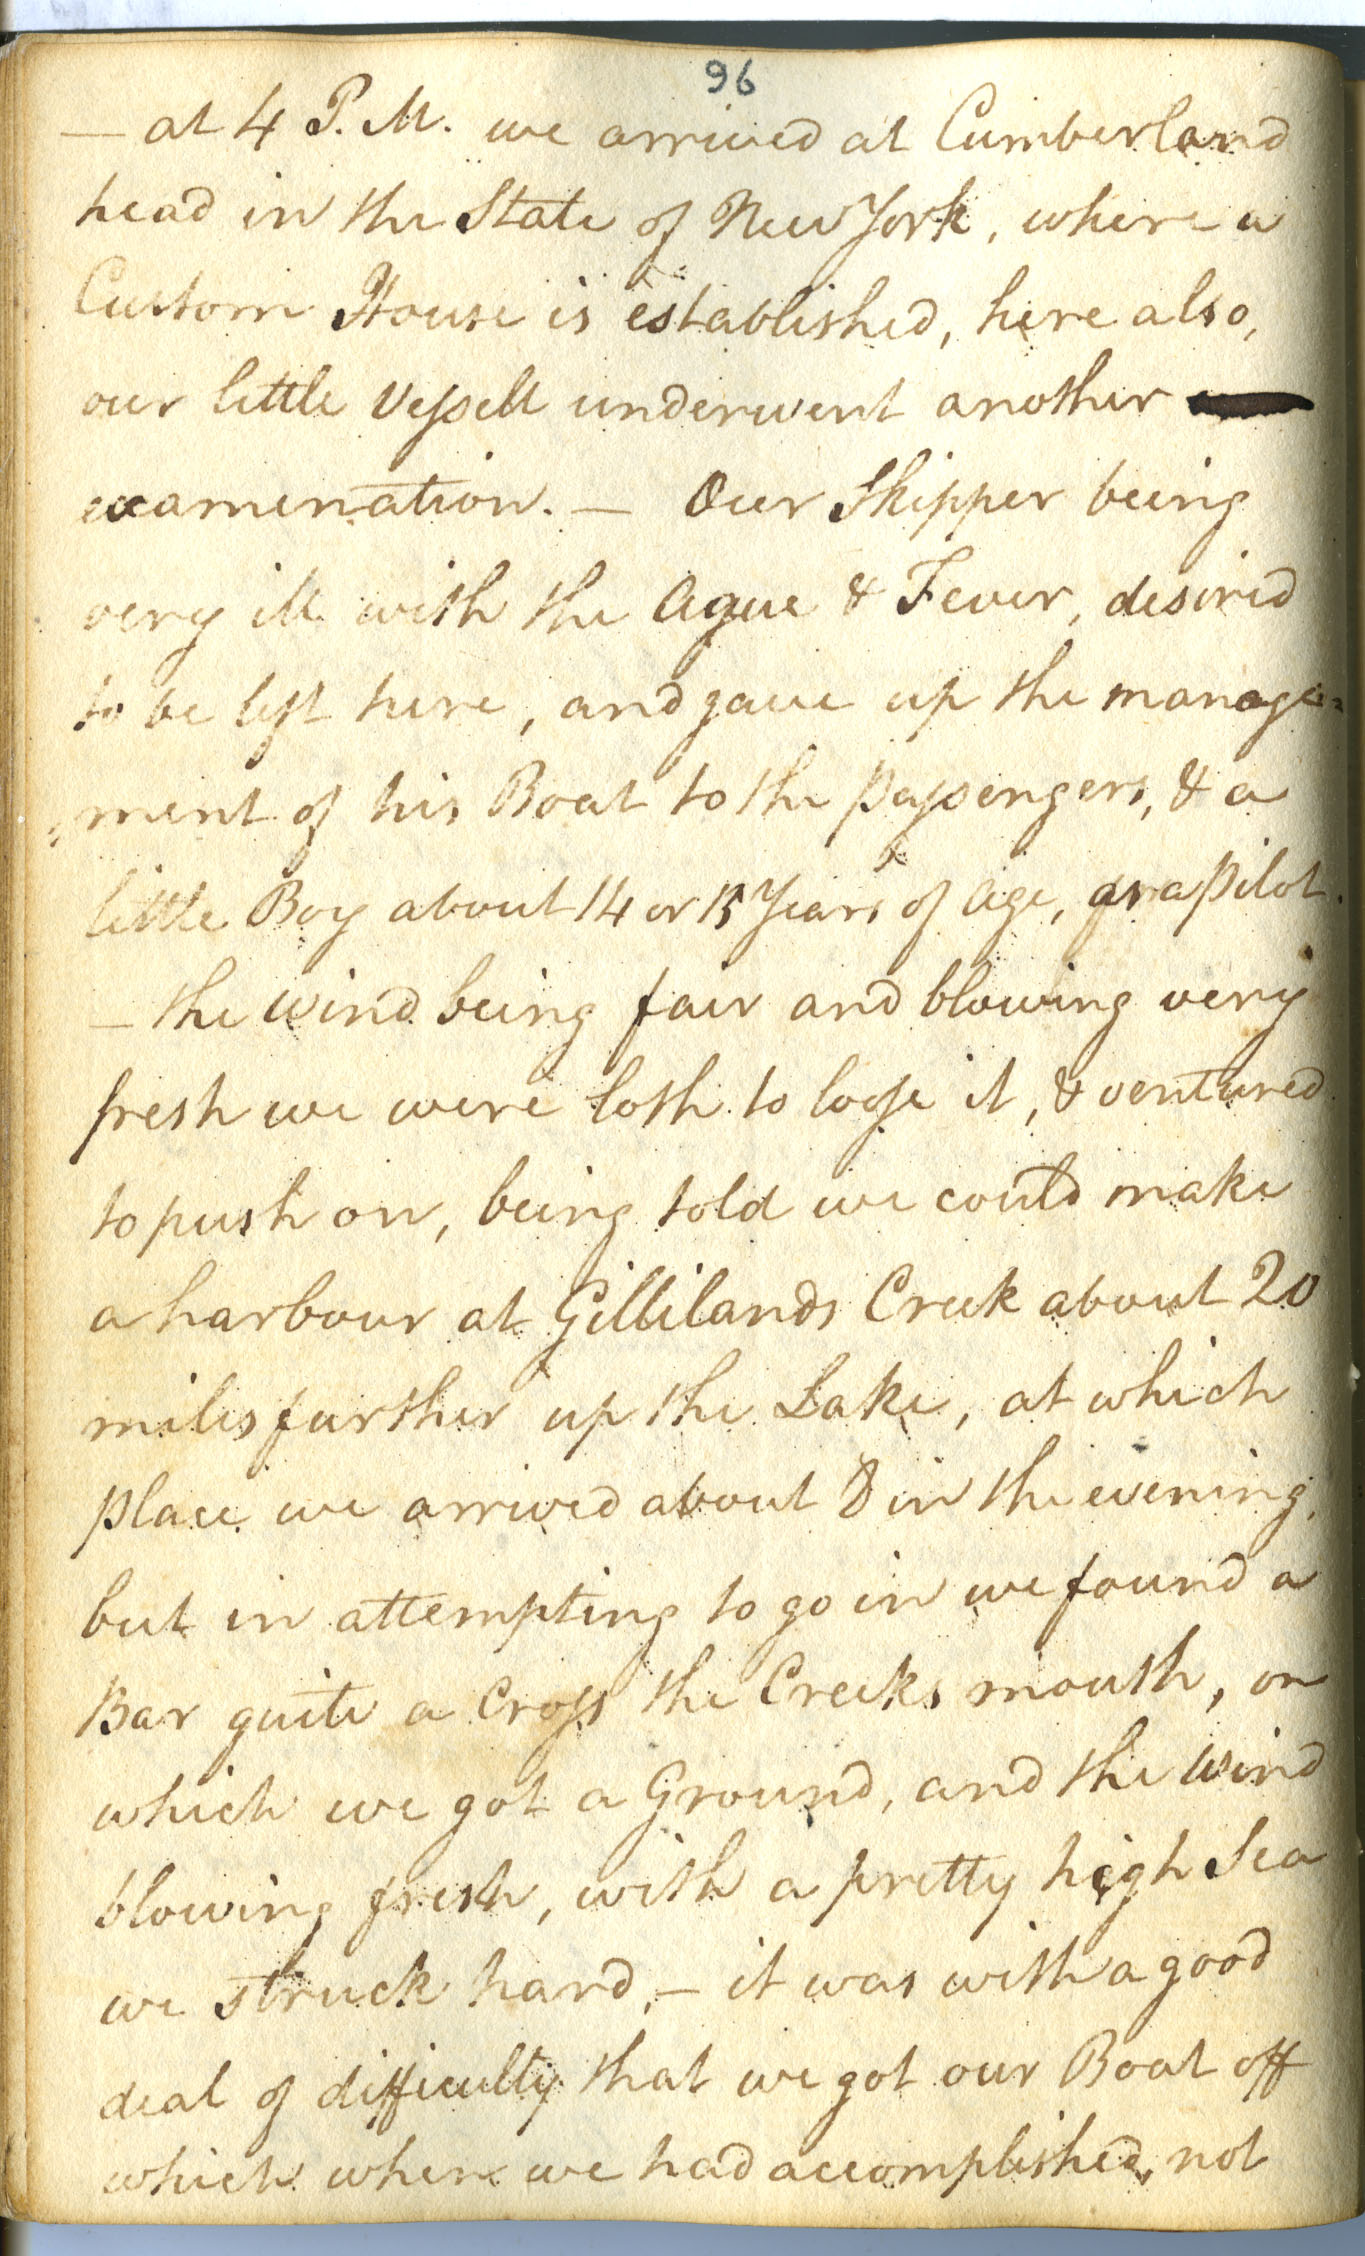 96
— at 4 P.M. we arrived at Cumberland
head in the State of New York, where a
Custom House is established, here also,
our little Vessell underwent another
examenation. — Our Skipper being
very ill with the Ague & Fever, desired
to be left here, and gave up the manage=
"ment of his Boat to the passengers, & a
little Boy about 14 or 15 Years of Age, as a pilot.
— the wind being fair and blowing very
fresh we were loth to loose it, & ventured
to push on, being told we could make
a harbour at Gillilands Creek about 20
miles further up the Lake, at which
place we arrived about 8 in the evening,
but in attempting to go in we found a
Bar quite a Cross the Creeks mouth, on
which we got a Ground, and the wind
blowing fresh, with a pretty high Sea
we struck hard, — it was with a good
deal of difficulty that we got our Boat off
which when we had accomplished, not